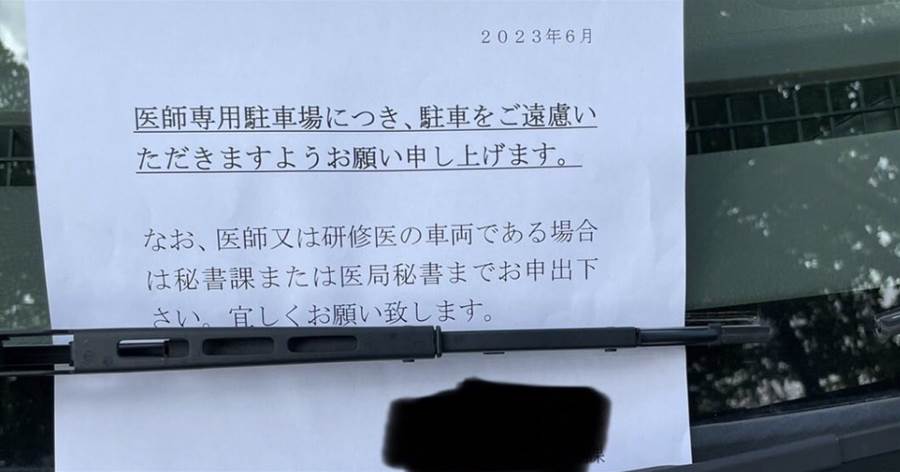 ２０２３年６月
医師専用駐車場につき、駐車をご遠慮い
ただきますようお願い申し上げます。
なお、医師又は研修医の車両である場合
は秘書課または医局秘書までお申出下
さい。宜しくお願い致します。